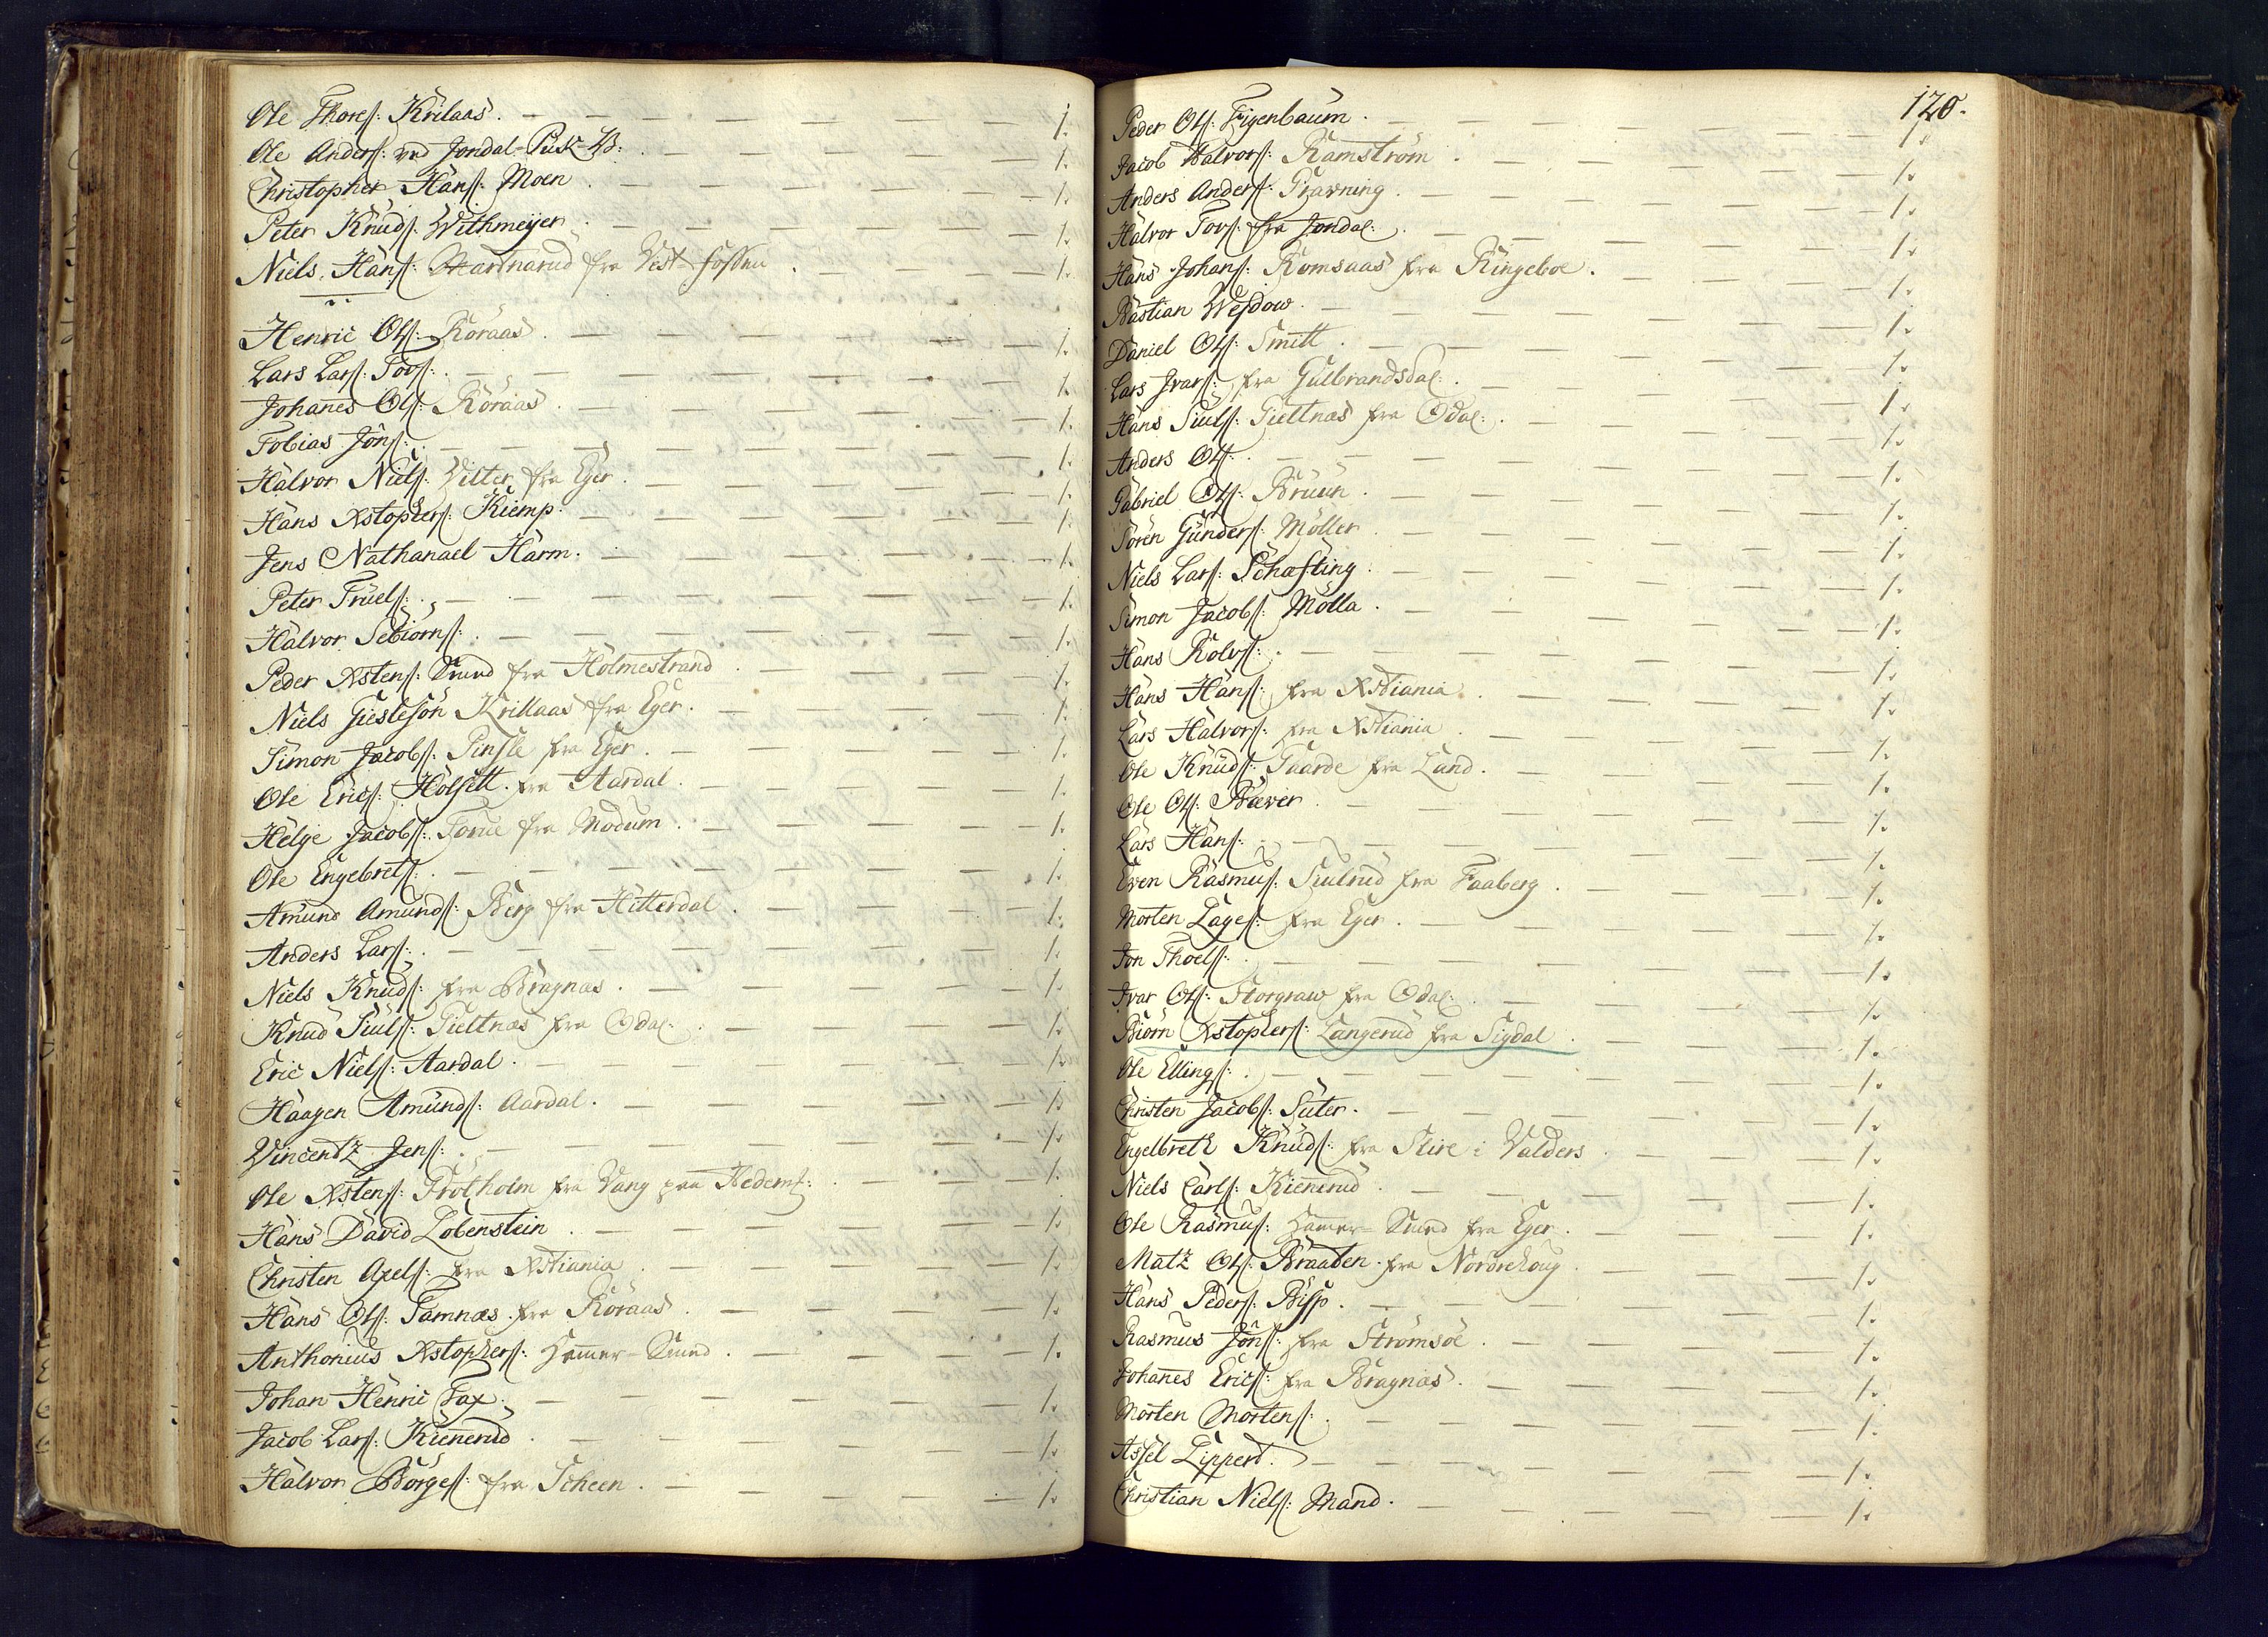 Ole Thores: Krilaas. 1.
Ole Anders: ved Jondal-Puk-W: 1.
Christopher Hans: Moen 1.
Peter Knuds: Withmeyer 1.
Niels Hans: fra Vest-fossen 1.
Henric Ols: Röraas 1.
Lars Lars: Tovs: 1.
Johañes Ols: Röraas 1.
Tobias Jons: 1.
Halvor Niels: Vitter fra Eger 1.
Hans Xstophers: Kiemp 1.
Jens Nathanael Harm. 1.
Peter Truels: 1.
Halvor Sebiörns: 1.
Peder Xstens: Smed fra Holmestrand 1.
Niels Giestesön Krillaas fra Eger. 1.
Simon Jacobs: fra Eger. 1.
Ole Erics: Holsett. fra Aardal 1.
Helge Jacobs: Torue fra Modum. 1.
Ole Engebrets: 1.
Amund Amunds: Berg fra Hitterdal 1.
Anders Lars: 1.
Niels Knuds: fra Bragnæs. 1.
Knud Siuls: Tieltnæs fra Odal: 1.
Eric Niels: Aardal. 1.
Haagen Amunds: Aardal. 1.
Vincentz Jens: 1.
Ole Xstens: Grötholm fra Vang paa Hedemk: 1.
Hans David Lobenstein 1.
Christen Axels: fra Xstiania 1.
Hans Ols: Tamnæs. fra Röraas 1.
Anthonius Xstophers: Ham̃er-Smed. 1.
Johan Henric Fax. 1.
Jacob Lars: Kieñerud 1.
Halvor Börges: fra Scheen. 1.
120.
Peder Ols: Figenbaum. 1.
Jacob Halvors: Ramström 1.
Anders Anders: Gravning. 1.
Halvor Tovs: fra Jondal: 1.
Hans Johans: Romsaas fra Ringeboe. 1.
Bastian Wesdow. 1.
Daniel Ols: Smitt. 1.
Lars Ivars: fra Gulbrandsdal: 1.
Hans Siuls: Tieltnæs fra Odal: 1.
Anders Ols: 1.
Gabriel Ols: Bruun. 1.
Sören Gunders: Möller 1.
Niels Lars: Schafting. 1.
Simon Jacobs: Molla. 1.
Hans Rolvs: 1.
Hans Hans: fra Xstiania. 1.
Lars Halvors: fra Xstiania 1.
Ole Knuds: Gaarde fra Land. 1.
Ole Ols: Bæver 1.
Lars Hans: 1.
Even Rasmus: Siulrud fra Faaberg. 1.
Morten Lages: fra Eger. 1.
Jon Thoels: 1.
Ivar Ols: Storgraw fra Odal: 1.
Biörn Xstophers: Langerud fra Sigdal. 1.
Ole Ellings: 1.
Christen Jacobs: Suter. 1.
Engelbreth Knuds: fra Slire i Valders 1.
Niels Carls: Kieñerud 1.
Ole Rasmus: Ham̃er-Smed fra Eger. 1.
Matz Ols: Braaten. fra Nordrehoug 1.
Hans Peders: Bisp. 1.
Rasmus Jons: fra Strömsöe 1.
Johañes Erics: fra Bragnæs. 1.
Morten Mortens: 1.
Assel Lippert. 1.
Christian Niels: Mand. 1.